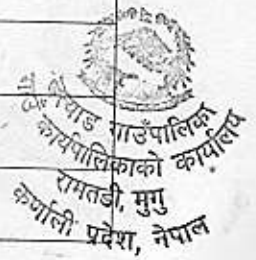 गाउँपालिका
कार्यपालिकाको कार्यालय
रामतडी, मुगु
कर्णाली प्रदेश, नेपाल